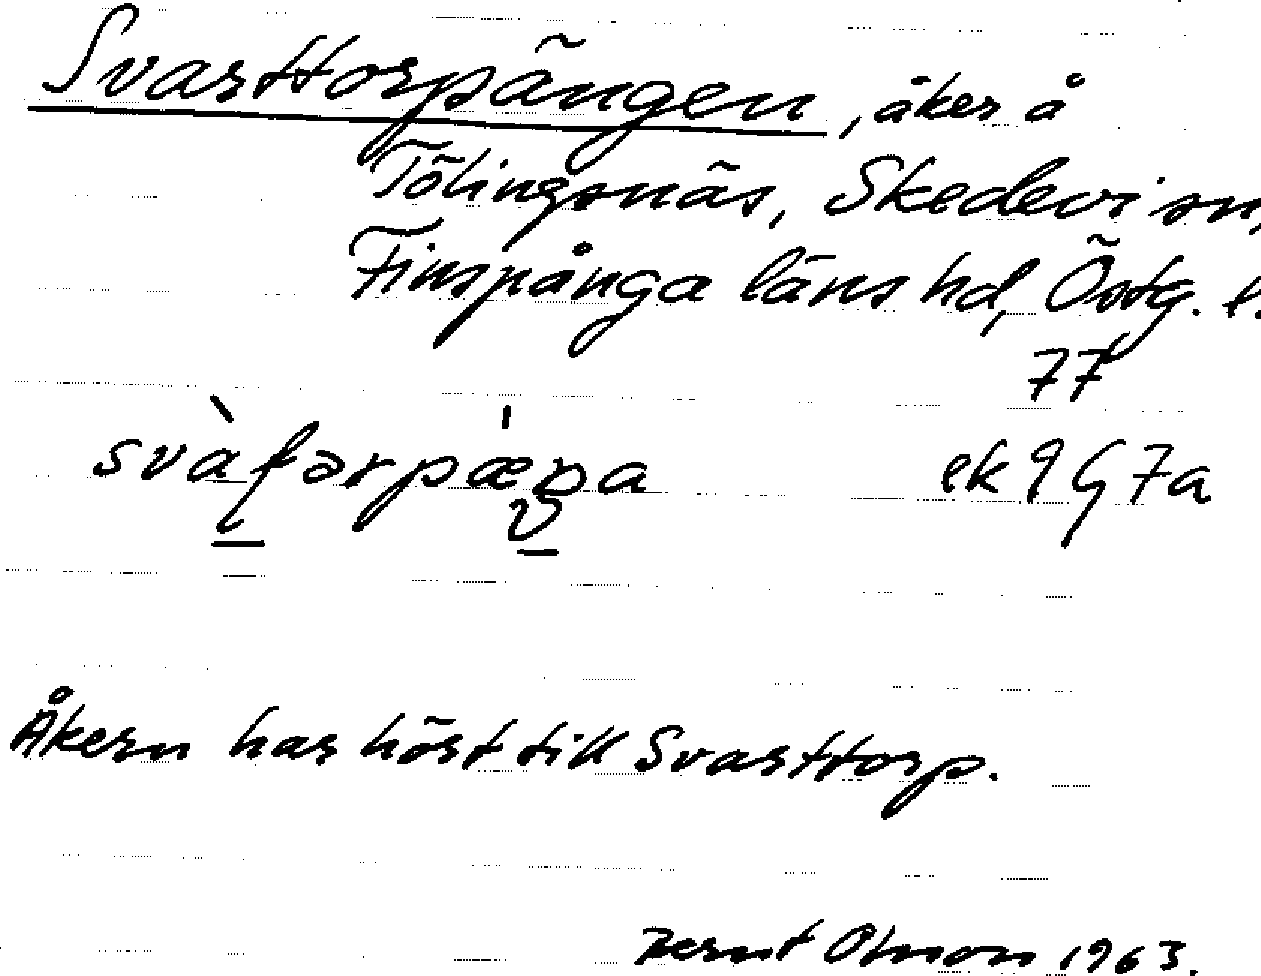 Svarttorpängen, åker å
Tölingsnäs, Skedevi sn,
Finspånga läns hd, Östg. l.
77
ek 9G7a
Åkern har hört till Svarttorp.
Bernt Olsson 1963.